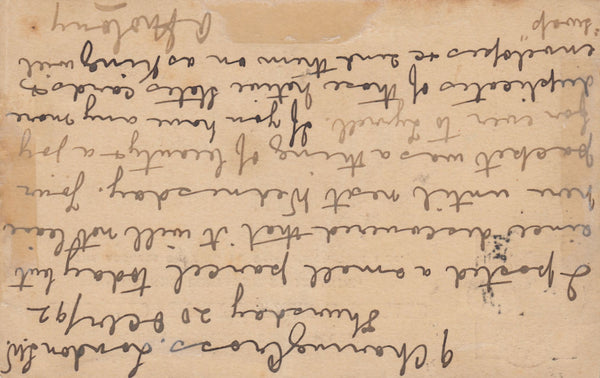 9 Charing Cross. London S.W.
Thursday 20 Octr/92
I posted a small parcel today but
since discovered that it will not leave
here until next Wednesday. Your
packet was a thing of beauty & a joy
for ever to Tyrrell. If you have any more
duplicates of those native States cards &
envelopes &c send them on asking will
"swap"